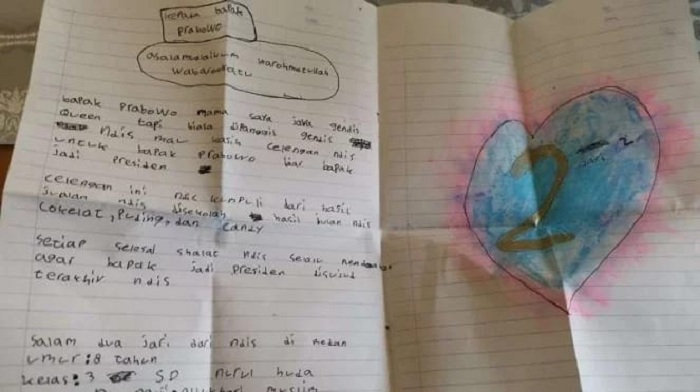 kepada bapak
prabowo
asalamalaikum warohmatullah
wabarokatu
bapak prabowo mama saya java gendis
Queen tapi biasa dipanggil gendis
Ndis mau kasih celengan ndis
untuk bapak prabowo biar bapak
jadi presiden
celengan ini ndis kumpuli dari hasil
jualan ndis disekolah hasil jualan ndis
Cokelat, Puding, dan candy
setiap selesai shalat ndis selalu mendoakan
agar bapak jadi presiden disujud
terakhir ndis
salam dua jari dari ndis di medan
umur: 8 tahun
kelas: 3 SD nurul huda
muslim
2
dari